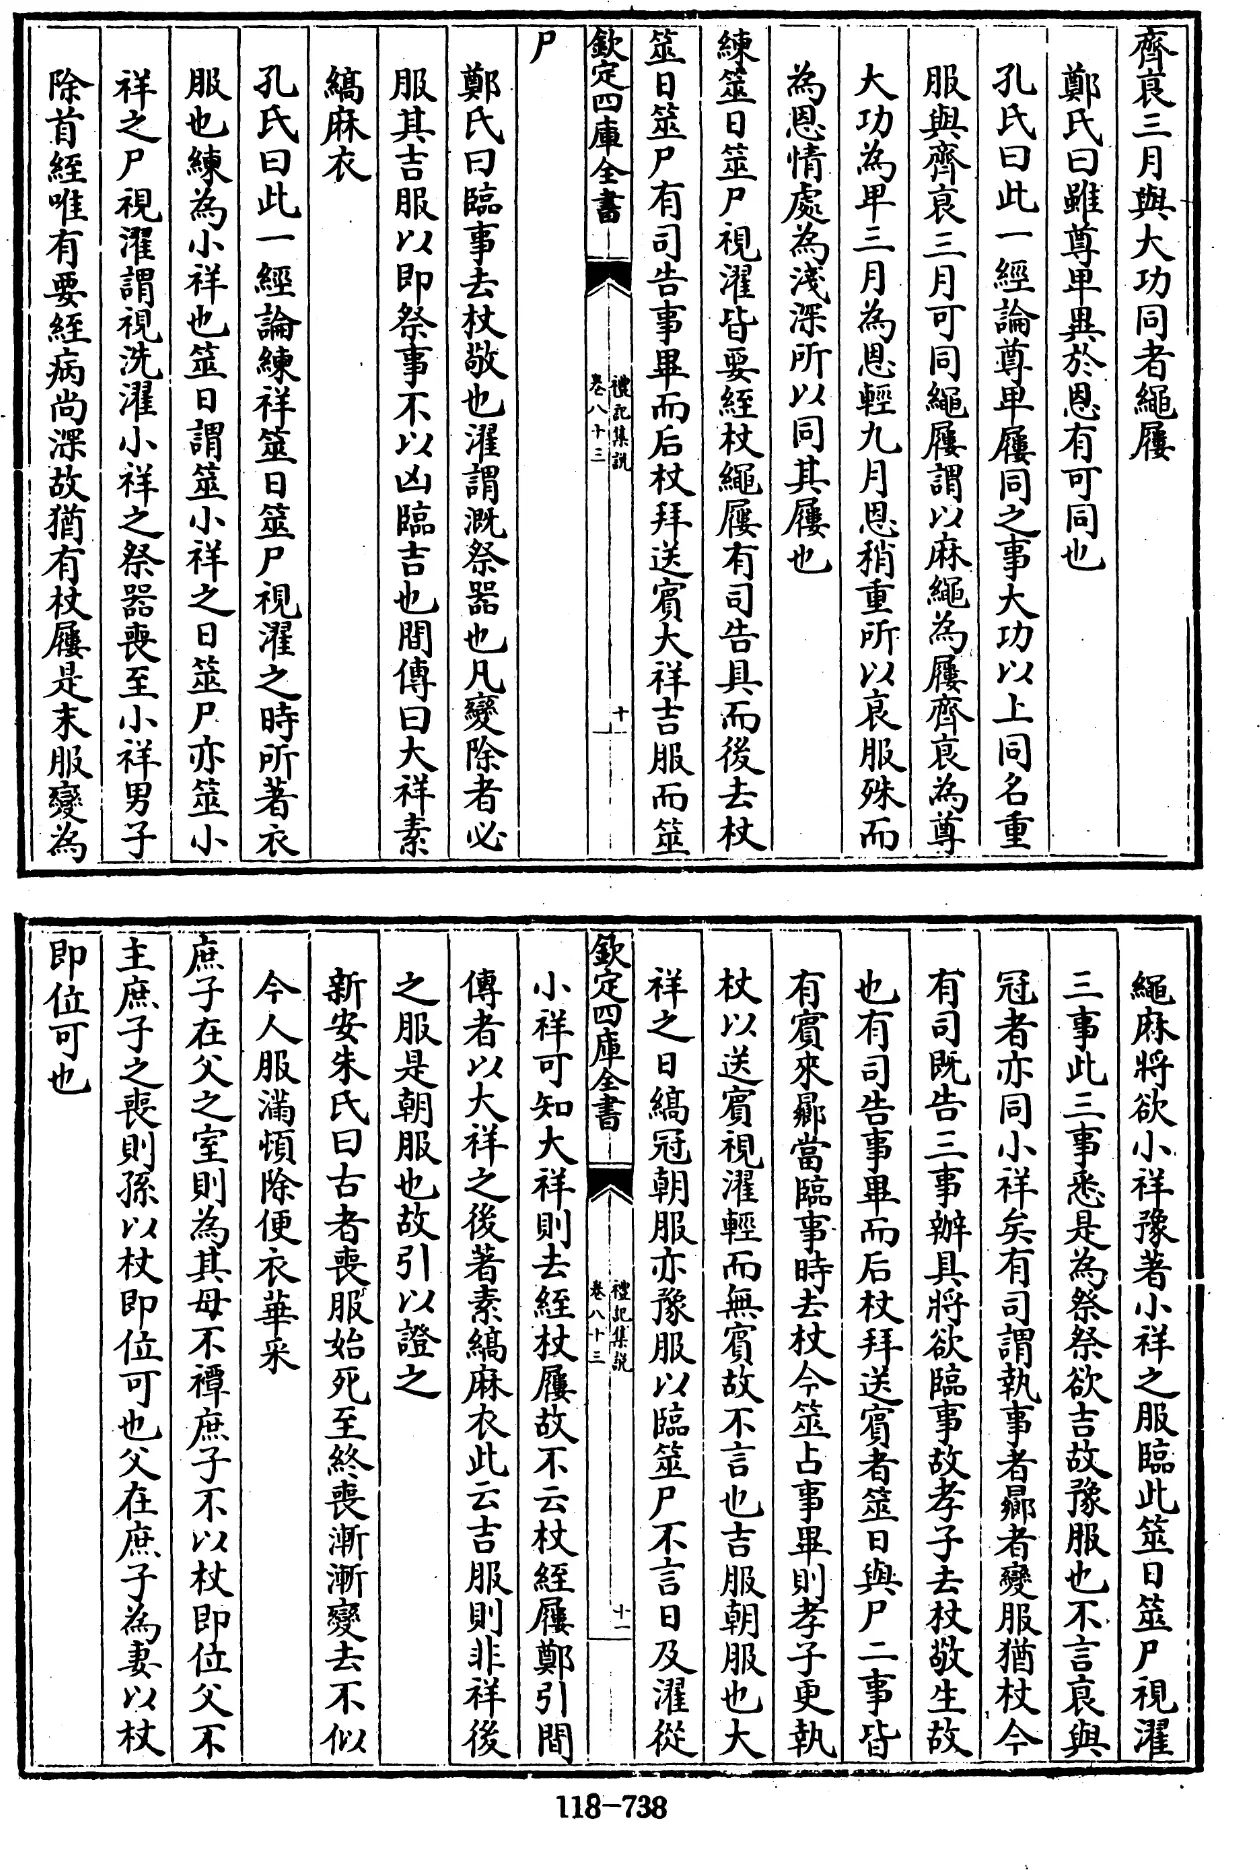 齊衰三月與大功同者繩屨
鄭氏曰雖尊卑異於恩有可同也
孔氏曰此一經論尊卑屨同之事大功以上同名重
服與齊衰三月可同繩屨謂以麻繩為屨齊衰為尊
大功為卑三月為恩輕九月恩稍重所以衰服殊而
為恩情處為淺深所以同其屨也
練筮日筮尸視濯皆要絰杖繩屨有司告具而後去杖
筮日筮尸有司告事畢而后杖拜送賔大祥吉服而筮
欽定四庫全書
禮記集說
卷八十三
十
尸
鄭氏曰臨事去杖敬也濯謂溉祭器也凡變除者必
服其吉服以即祭事不以凶臨吉也間傳曰大祥素
縞麻衣
孔氏曰此一經論練祥筮日筮尸視濯之時所著衣
服也練為小祥也筮日謂筮小祥之日筮尸亦筮小
祥之尸視濯謂視洗濯小祥之祭器喪至小祥男子
除首絰唯有要絰病尚深故猶有杖屨是末服變為
繩麻將欲小祥豫著小祥之服臨此筮日筮尸視濯
三事此三事悉是為祭祭欲吉故豫服也不言衰與
冠者亦同小祥矣有司謂執事者曏者變服猶杖今
有司既告三事辦具將欲臨事故孝子去杖敬生故
也有司告事畢而后杖拜送賔者筮日與尸二事皆
有賔來曏當臨事時去杖今筮占事畢則孝子更執
杖以送賔視濯輕而無賔故不言也吉服朝服也大
祥之日縞冠朝服亦豫服以臨筮尸不言日及濯從
欽定四庫全書
禮記集說
卷八十三
十一
小祥可知大祥則去絰杖屨故不云杖絰屨鄭引間
傳者以大祥之後著素縞麻衣此云吉服則非祥後
之服是朝服也故引以證之
新安朱氏曰古者喪服始死至終喪漸漸變去不似
今人服滿頓除便衣華采
庶子在父之室則為其母不禫庶子不以杖即位父不
主庶子之喪則孫以杖即位可也父在庶子為妻以杖
即位可也
118-738